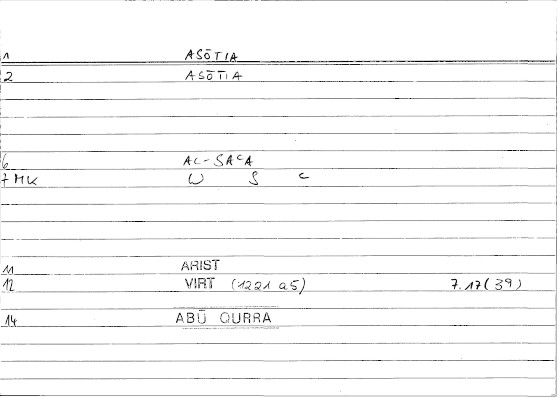 1 ASŌTIA
2 ASŌTIA
6 AL-SAʿA
7 MK W S ʿ
11 ARIST
12 VIRT (1221 a5) 7.17(39)
14 ABŪ QURRA